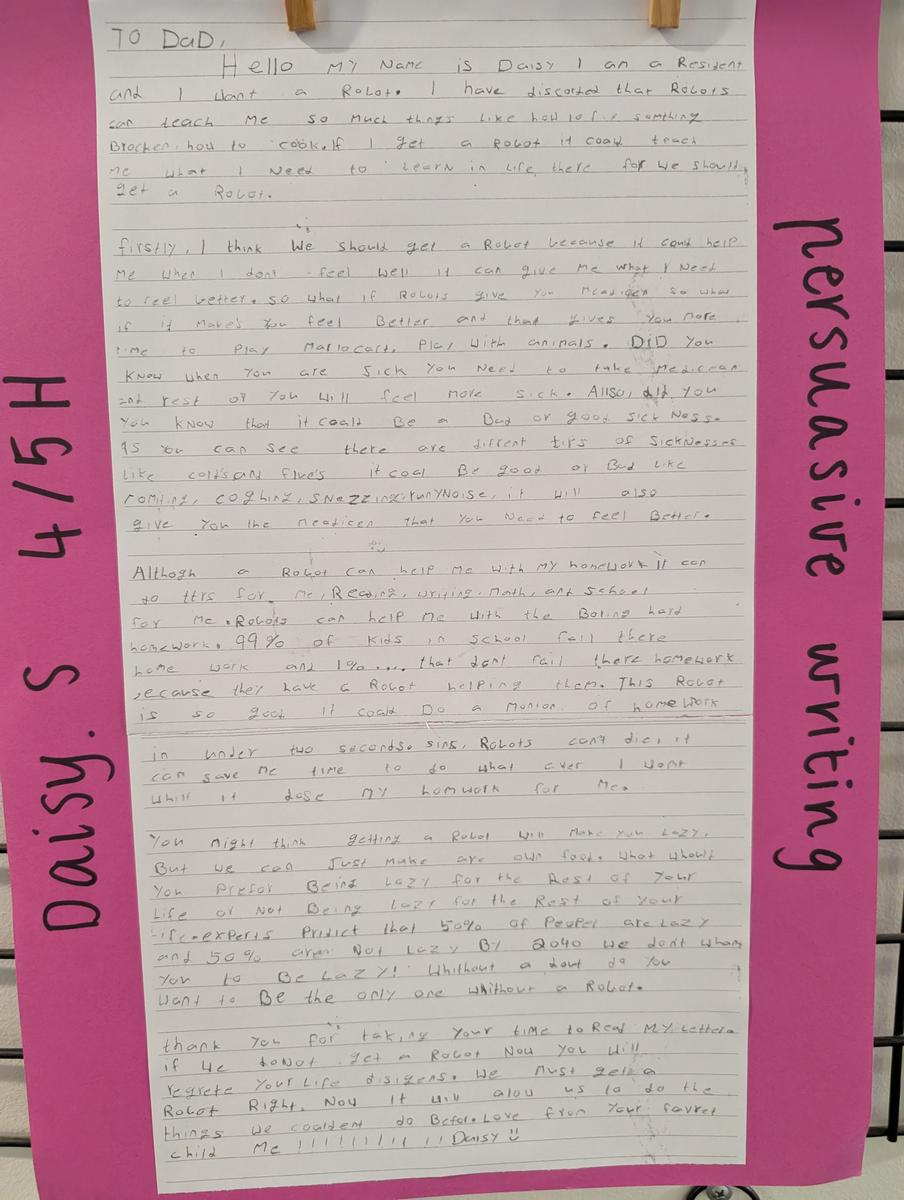 TO DaD,
Hello MY Name is Daisy I am a Resident
and I want a Robot. I have discorted that Robots
can teach Me so Much things like how to fix somthing
Brocken, how to cook. If I get a Robot it coad teach
Me what I Need to learn in life there for we should
get a Robot.
firstly, I think We should get a Robot because it could help
Me when I dont feel well it can give Me what I Need
to feel better. so what if Robots give You so what
if it Makes You feel Better and that gives You More
time to Play Mariocart, Play With animals. DiD You
Know when You are Sick You Need to take Medicean
and rest or You will feel more sick. Allso, did You
You know that it coald Be a Bad or good sick Ness.
As You can see there are diffrent tips of SickNesses
Like colds and flue's it coal Be good or Bad Like
romiting, coghing, sNezzing, runYNoise, it will also
give You the Meadicen that You Need to feel Better.
Althogh a Robot can help Me with MY homework It can
do this for Me, Reading, writing, Math, and school
for Me. Robots can help Me with the Boling hard
homework. 99% of Kids in School fail there
home work and 1%.... that dont fail there homework
because they have a Robot helping them. This Robot
is so good it coald Do a Monion of homework
in under two seconds. sins, Robots cant die, it
can save Me time to do what ever I want
whill it dose MY homwork for Me.
You might think getting a Robot will Make You Lazy.
But we can Just Make are own food. What Whould
You Prefor Being Lazy for the Rest of Your
Life or Not Being Lazy for the Rest of Your
life. experts Predict that 50% of Peopel are Lazy
and 50% Not Lazy BY 2040 we don't
You to Be LaZY! Whithout a dout do You
Want to Be the only one Whithout a Robot.
thank You for taking Your time to Read MY Letter.
if We doNot get a Robot Now You Will
regrete Your Life disigens. We Must get a
Robot Right, Now it will alow us to do the
things we coaldent do Before. Love from Your favret
child Me !!!!!!!!!!! Daisy
Daisy. S 4/5H
persuasive writing